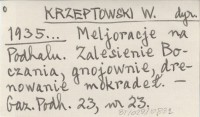 KRZEPTOWSKI W. dyr.
1935... Meljoracje na
Podhalu. Zalesienie Bo-
czania, gnojownie, dre-
nowanie mokradeł. —
Gaz. Podh. 23, nr 23.